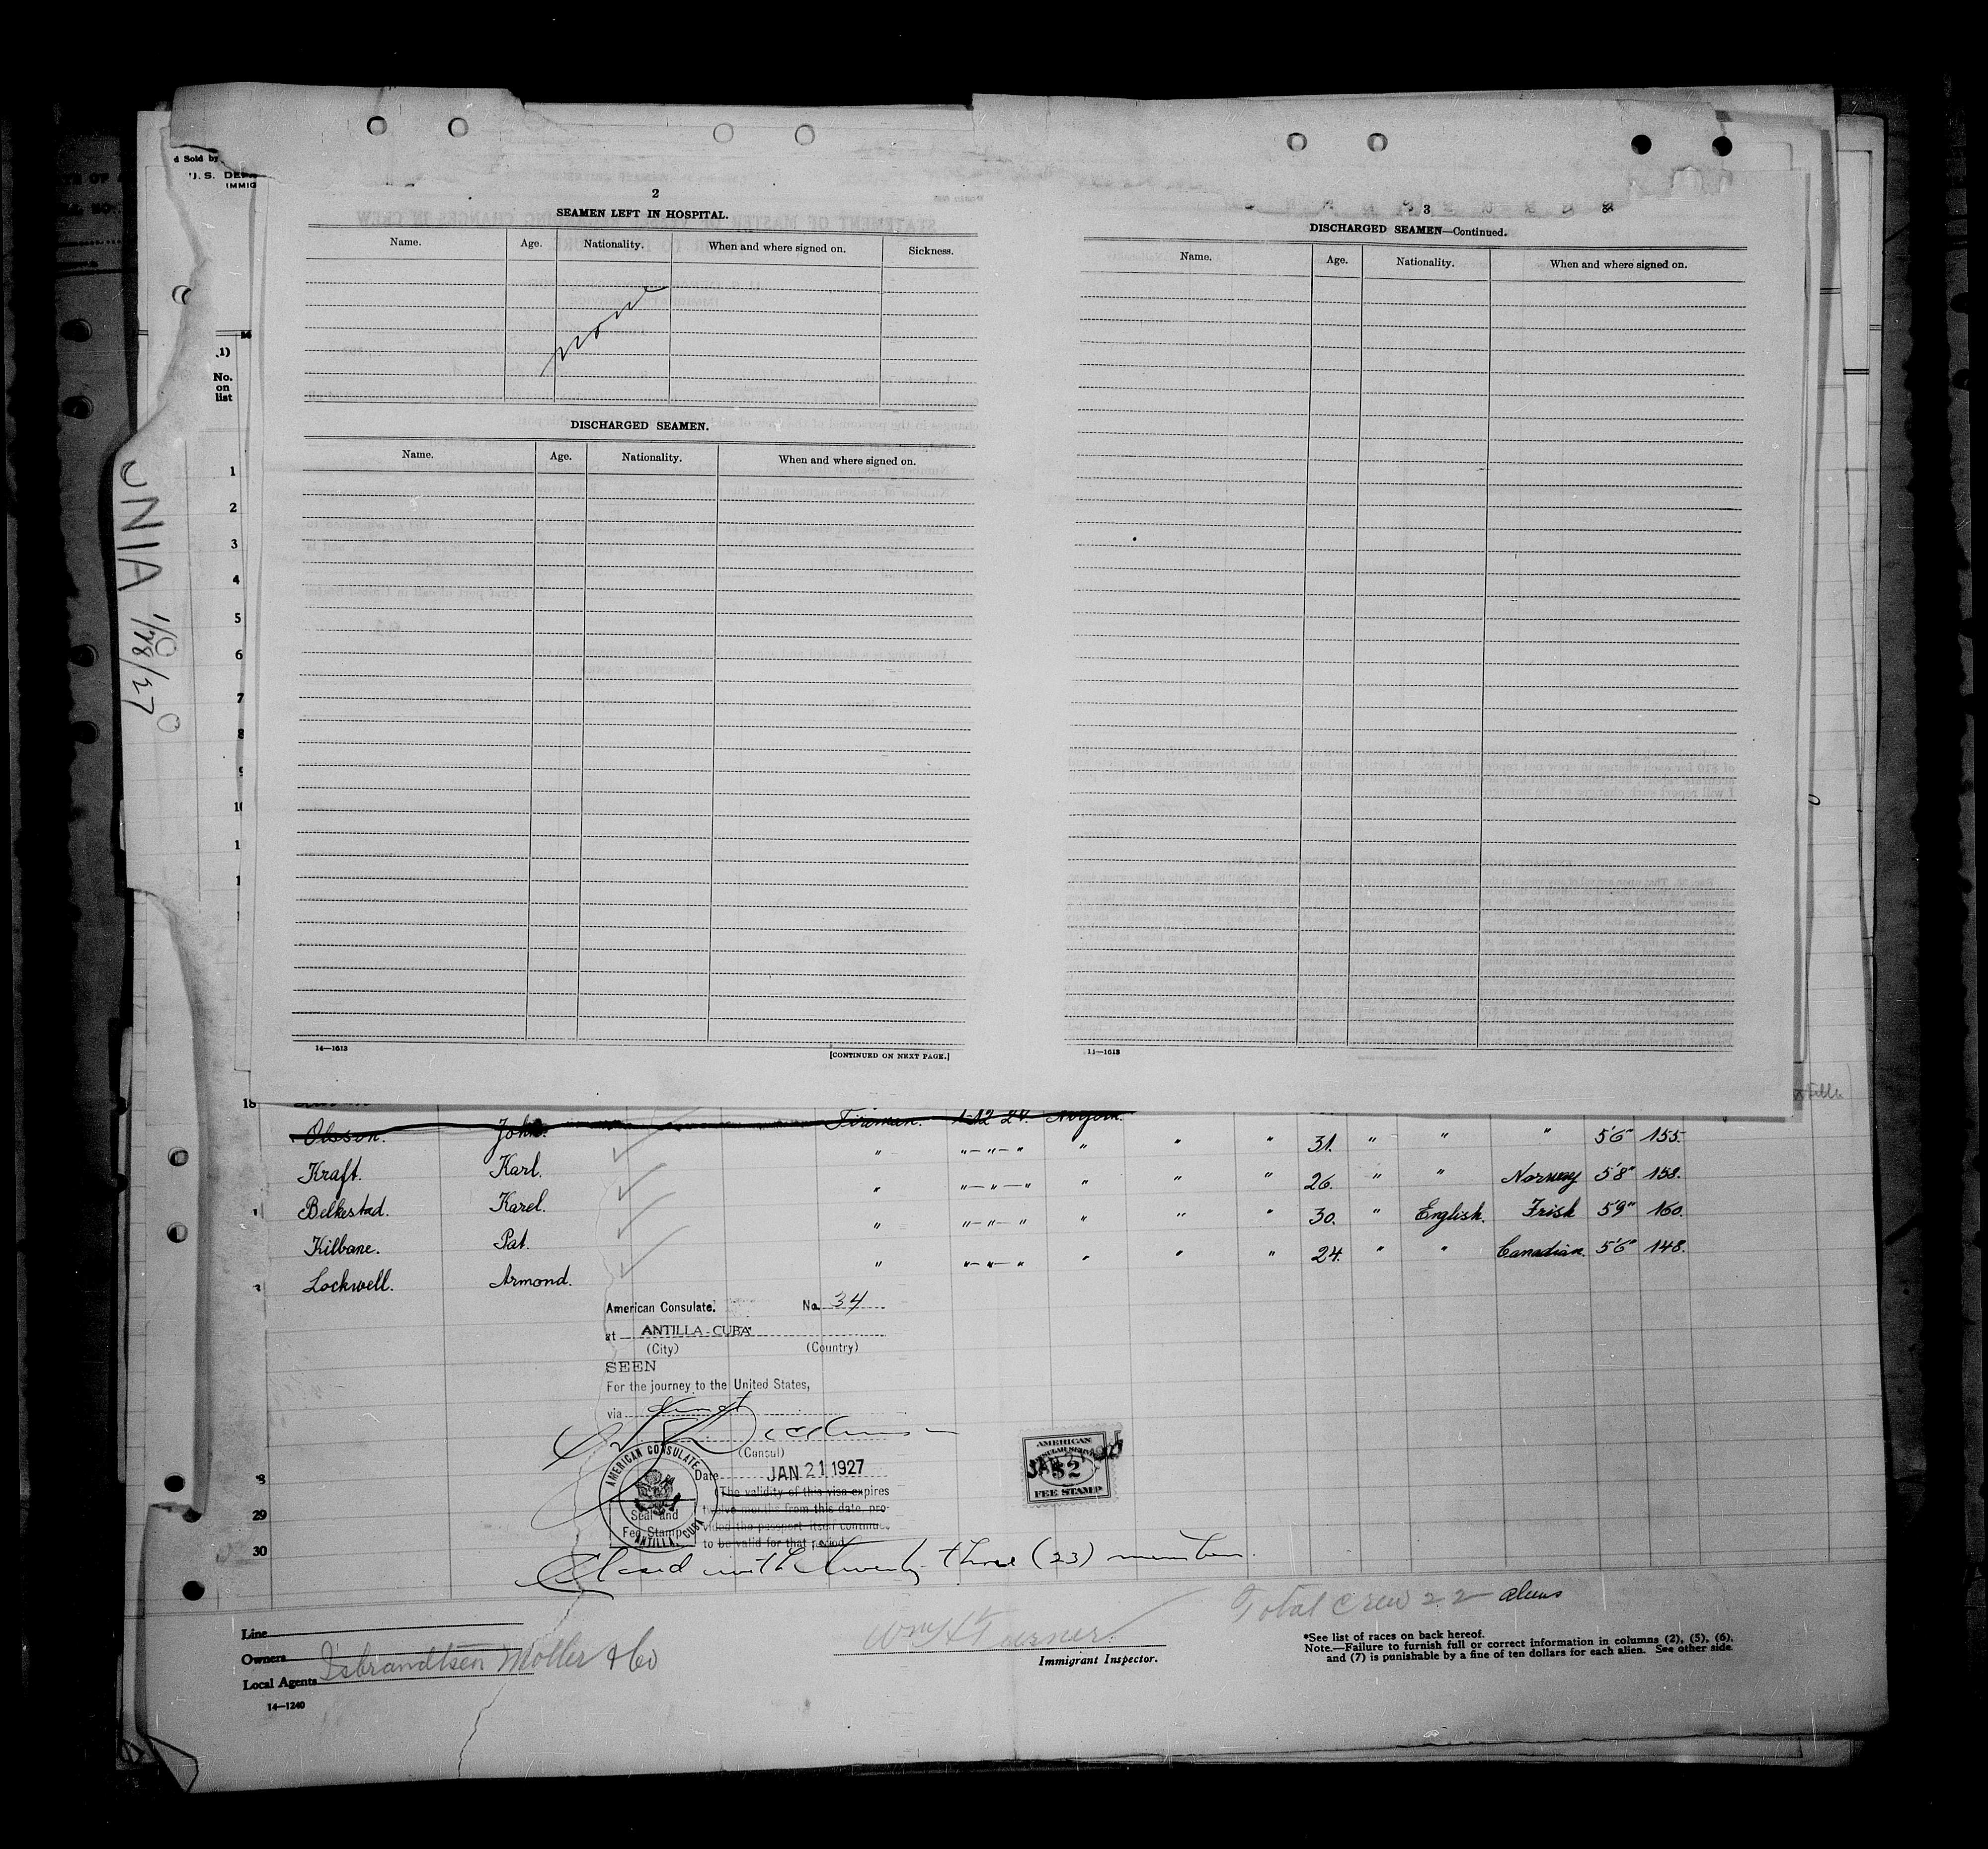 d Sold by
U.S. DEPA
IMMIG
(1)
No.
on
list
1
2
3
4
5
6
7
8
9
10
1
1
ONIA 1/28/27
2
SEAMEN LEFT IN HOSPITAL.
Name. Age. Nationality. When and where signed on. Sickness.
none
DISCHARGED SEAMEN.
Name. Age. Nationality. When and where signed on.
14—1613
[CONTINUED ON NEXT PAGE.]
3
DISCHARGED SEAMEN—Continued.
Name. Age. Nationality. When and where signed on.
14—1613
18
Olsson. John. Fireman. 1-12 27. N.York.
" "-"-" " " " 31. " " " 5'6" 155.
Kraft. Karl. " "-"-" " " " 26. " " Norway 5'8" 158.
Belkestad. Karel. " "-"-" " " " 30. " English. Irish 5'9" 160.
Kilbane. Pat. " "-"-" " " " 24. " " Canadian. 5'6" 148.
Lockwell. Armond.
American Consulate. No. 34
at ANTILLA-CUBA
(City) (Country)
SEEN
For the journey to the United States,
via direct
(Consul)
AMERICAN CONSULATE
ANTILLA, CUBA
Date JAN 21 1927
(The validity of this visa expires
twelve months from this date, pro-
vided the passport itself continues
to be valid for that period.)
Seal and
Fee Stamp
AMERICAN
CONSULAR SERVICE
$2
FEE STAMP
JAN 21 1927
29
30
Closed with twenty-three (23) members.
Total crew 22 aliens
Wm H Turner
Immigrant Inspector.
Line
Owners
Local Agents Isbrandtsen Moller & Co
14—1240
*See list of races on back hereof.
Note.—Failure to furnish full or correct information in columns (2), (5), (6),
and (7) is punishable by a fine of ten dollars for each alien. See other side.